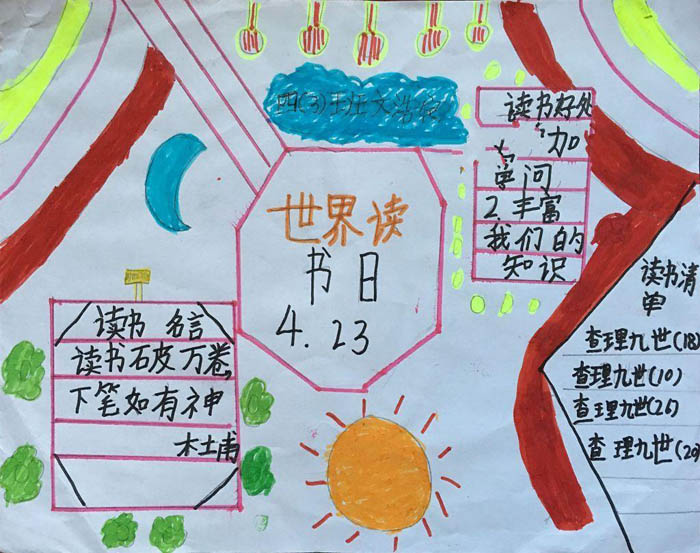 四(3)班文浩
世界读
书日
4.23
读书好处
加
问
2.丰富
我们的
知识
读书 名言
读书破万卷,
下笔如有神
杜甫
读书清
单
查理九世(18)
查理九世(10)
查理九世(26)
查理九世